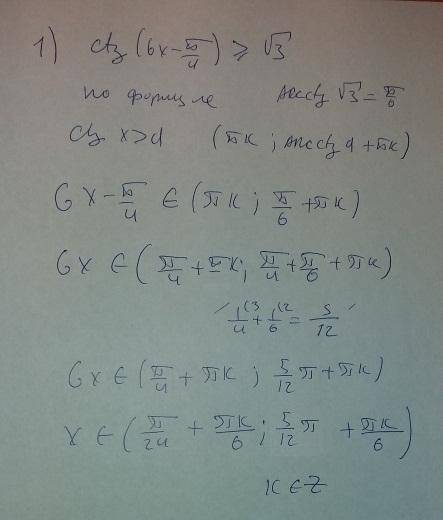 1) ctg (6x - π/4) ≥ √3
по формуле arcctg √3 = π/6
ctg x > a (πk ; arcctg a + πk)
6x - π/4 ∈ (πk ; π/6 + πk)
6x ∈ (π/4 + πk ; π/4 + π/6 + πk)
/ 1/4 (3 + 1/6 (2 = 5/12 /
6x ∈ (π/4 + πk ; 5/12 π + πk)
x ∈ (π/24 + πk/6 ; 5/12 π + πk/6)
k ∈ Z